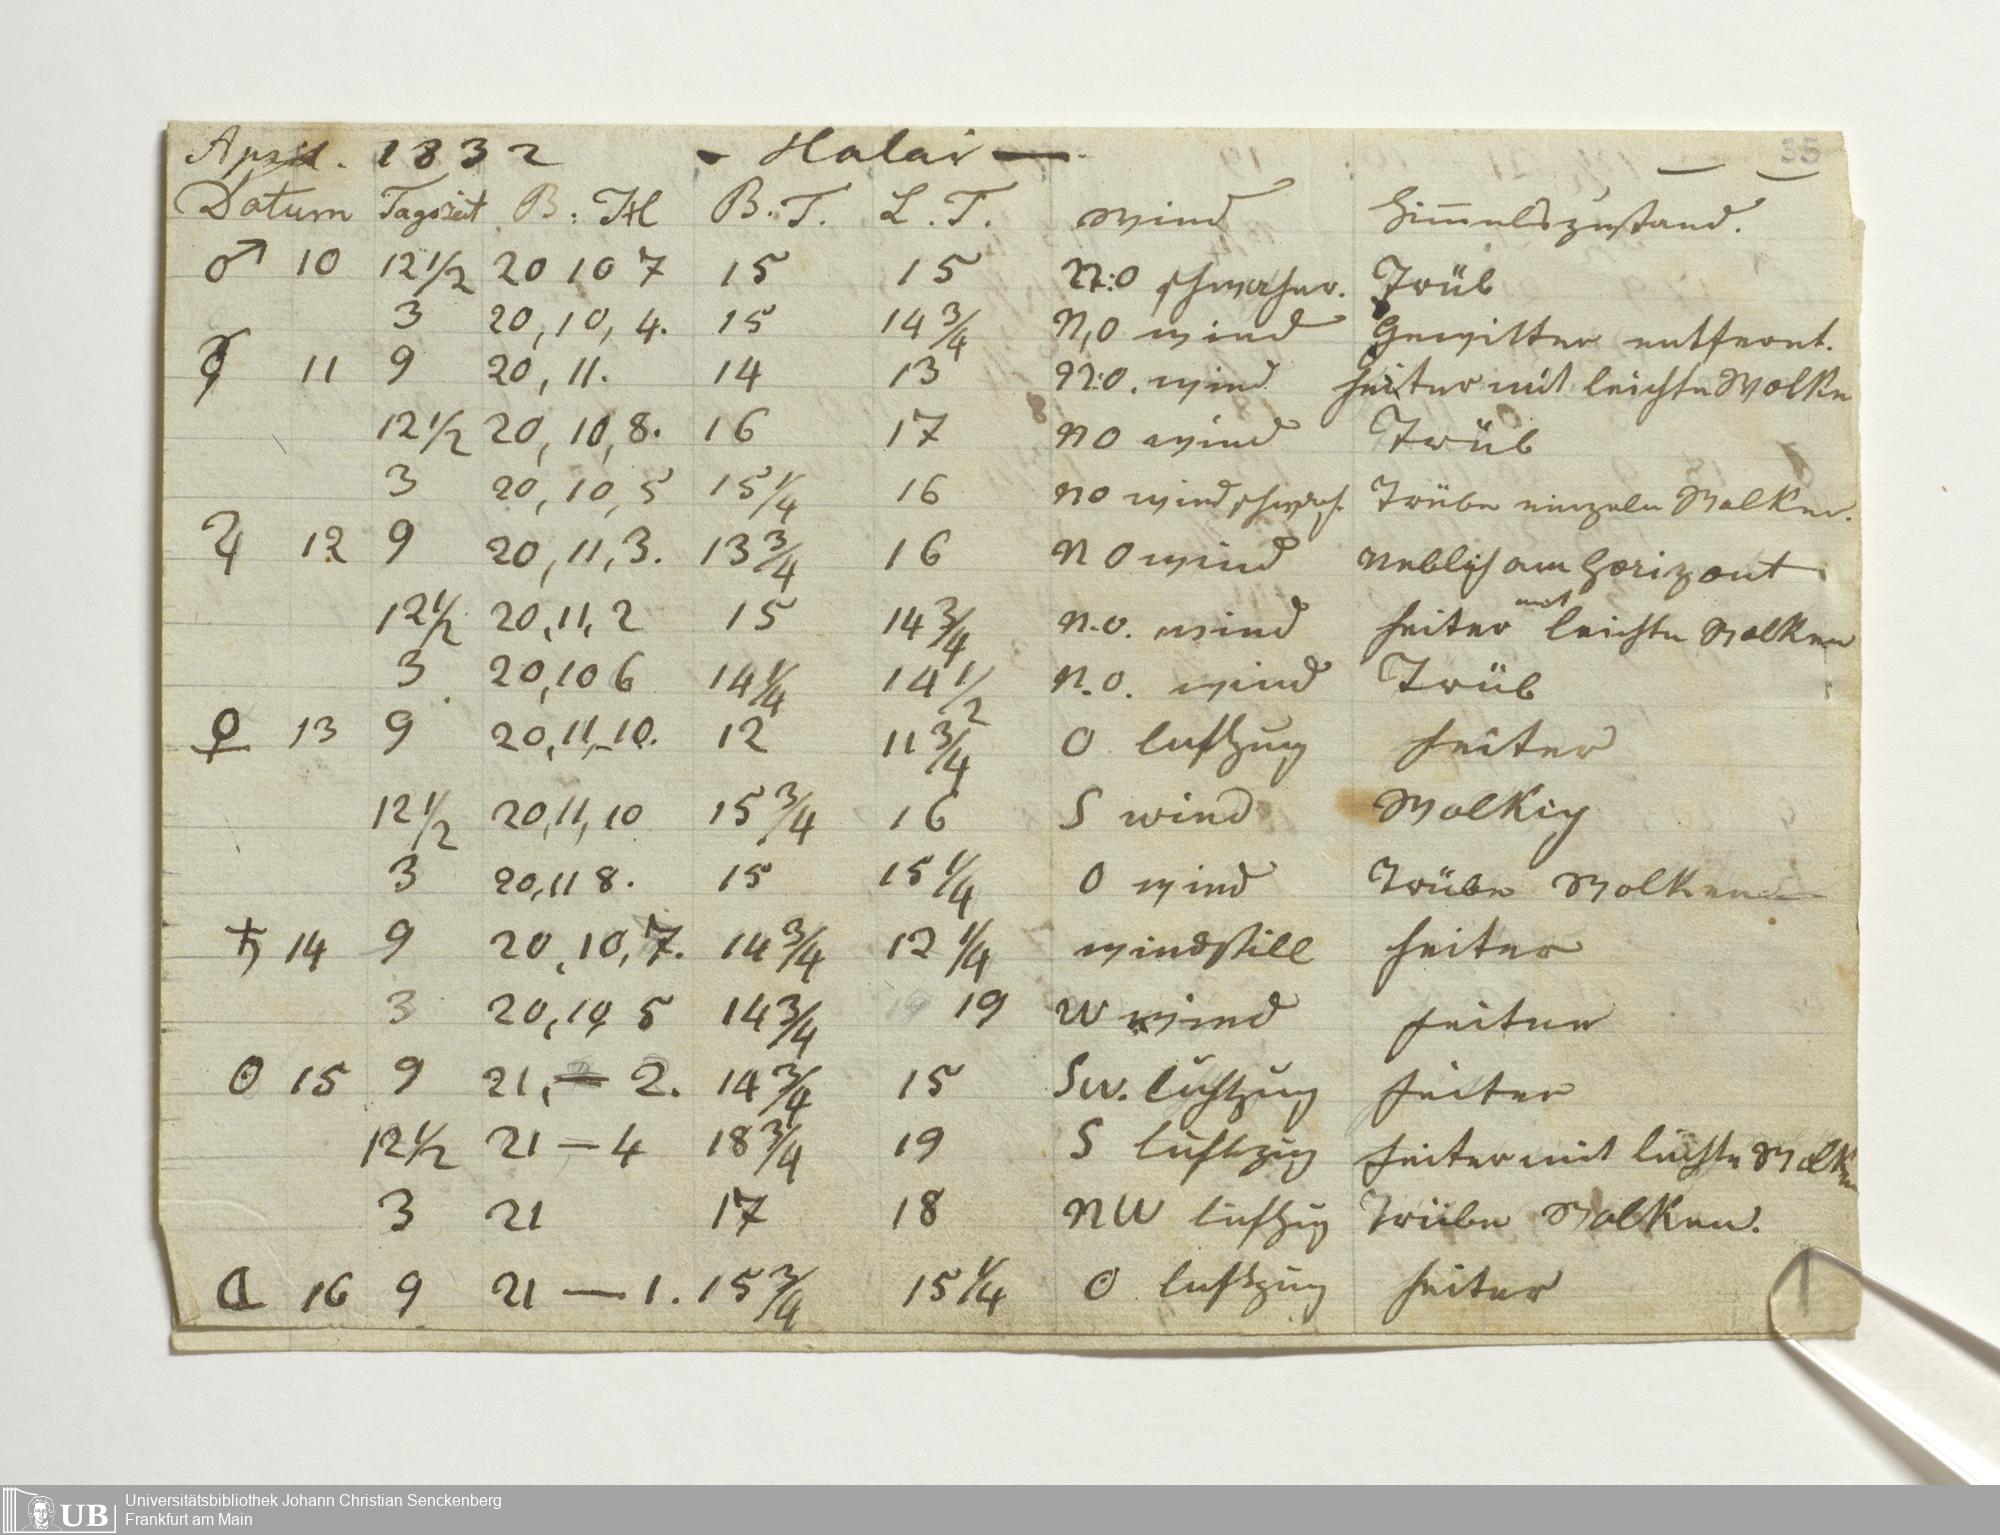 35
April. 1832 - Halai -
Datum Tagszeit B: H B.T. L.T. wind Himmelszustand.
♂ 10 12 1/2 20 10 7 15 15 N:O schwacher. Trüb
3 20,10,4. 15 14 3/4 N,O wind Gewitter entfernt.
☿ 11 9 20,11. 14 13 N:O. wind heiter mit leichte Wolke
12 1/2 20,10,8. 16 17 NO wind Trüb
3 20,10,5 15 1/4 16 NO wind schwach. Trübe einzeln Wolken.
♃ 12 9 20,11,3. 13 3/4 16 NO wind Neblich am Horizont
12 1/2 20,11,2 15 14 3/4 N.O. wind heiter mit leichte Wolken
3 20,10 6 14 1/4 14 1/2 N.O. wind Trüb
♀ 13 9 20,11,10. 12 11 3/4 O luftzug heiter
12 1/2 20,11,10 15 3/4 16 S wind Wolkig
3 20,11 8. 15 15 1/4 O wind Trübe Wolken
♄ 14 9 20,10,7. 14 3/4 12 1/4 windstill heiter
3 20,10 5 14 3/4 19 W wind heiter
☉ 15 9 21, — 2. 14 3/4 15 SW. luftzug heiter
12 1/2 21 — 4 18 3/4 19 S luftzug heiter mit leichte Wolken
3 21 17 18 NW luftzug Trübe Wolken.
☾ 16 9 21 — 1. 15 3/4 15 1/4 O luftzug heiter
UB Universitätsbibliothek Johann Christian Senckenberg
Frankfurt am Main